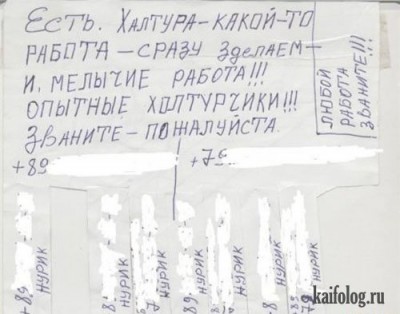 Есть. Халтура-какой-то
работа - сразу зделаем-
и. мелычие работа!!!
опытные холтурчики!!!
Званите - пожалуйста.
+89
+79
любой
работа
званите!!!
+89
Нурик
Нурик
Нурик
89
Нурик
79
Нурик
8
Нурик
89
79
Нурик
kaifolog.ru